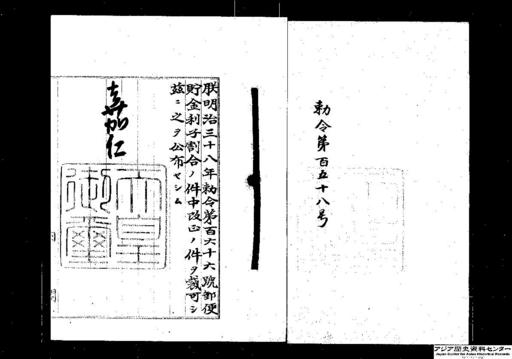 勅令第百五十八号
朕明治三十八年勅令第百六十六號郵便
貯金利子割合ノ件中改正ノ件ヲ裁可シ
茲ニ之ヲ公布セシム
嘉仁
天皇御璽
アジア歴史資料センター
Japan Center for Asian Historical Records